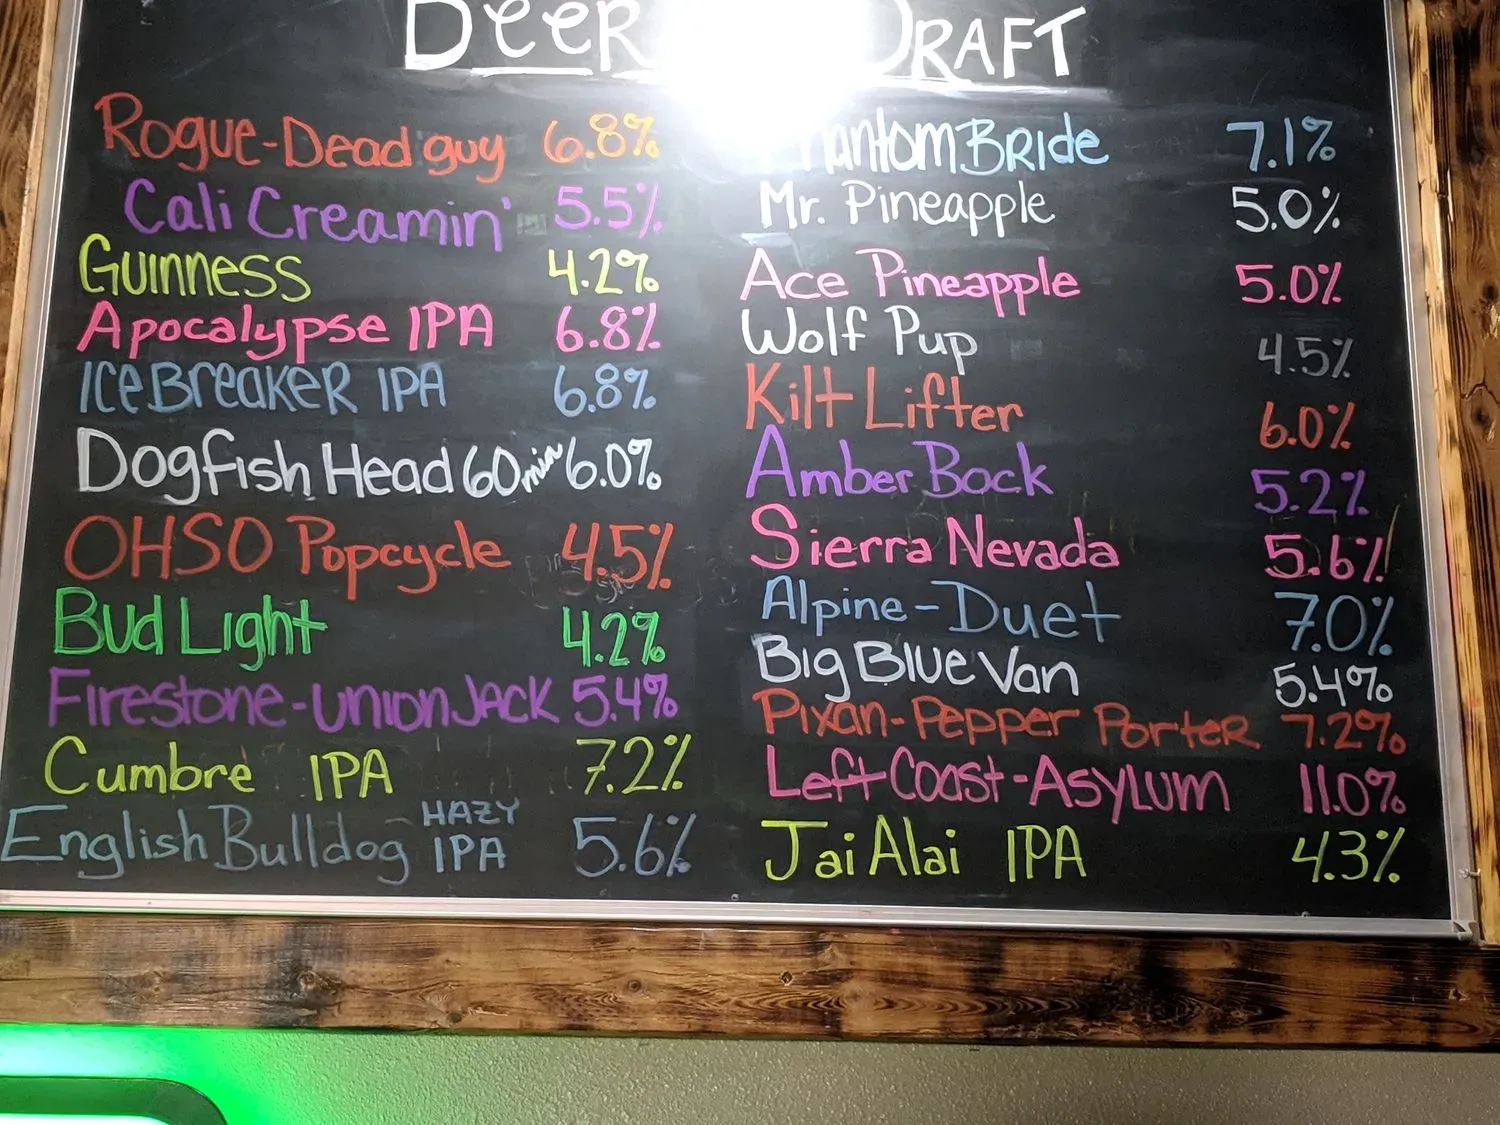 Beer Draft
Rogue-Dead guy 6.8%
Cali Creamin' 5.5%
Guinness 4.2%
Apocalypse IPA 6.8%
Ice Breaker IPA 6.8%
Dogfish Head 60 min 6.0%
OHSO Popcycle 4.5%
Bud Light 4.2%
Firestone-Union Jack 5.4%
Cumbre IPA 7.2%
English Bulldog HAZY IPA 5.6%
Phantom Bride 7.1%
Mr. Pineapple 5.0%
Ace Pineapple 5.0%
Wolf Pup 4.5%
Kilt Lifter 6.0%
Amber Bock 5.2%
Sierra Nevada 5.6%
Alpine-Duet 7.0%
Big Blue Van 5.4%
Pixan-Pepper Porter 7.2%
Left Coast-Asylum 11.0%
Jai Alai IPA 4.3%